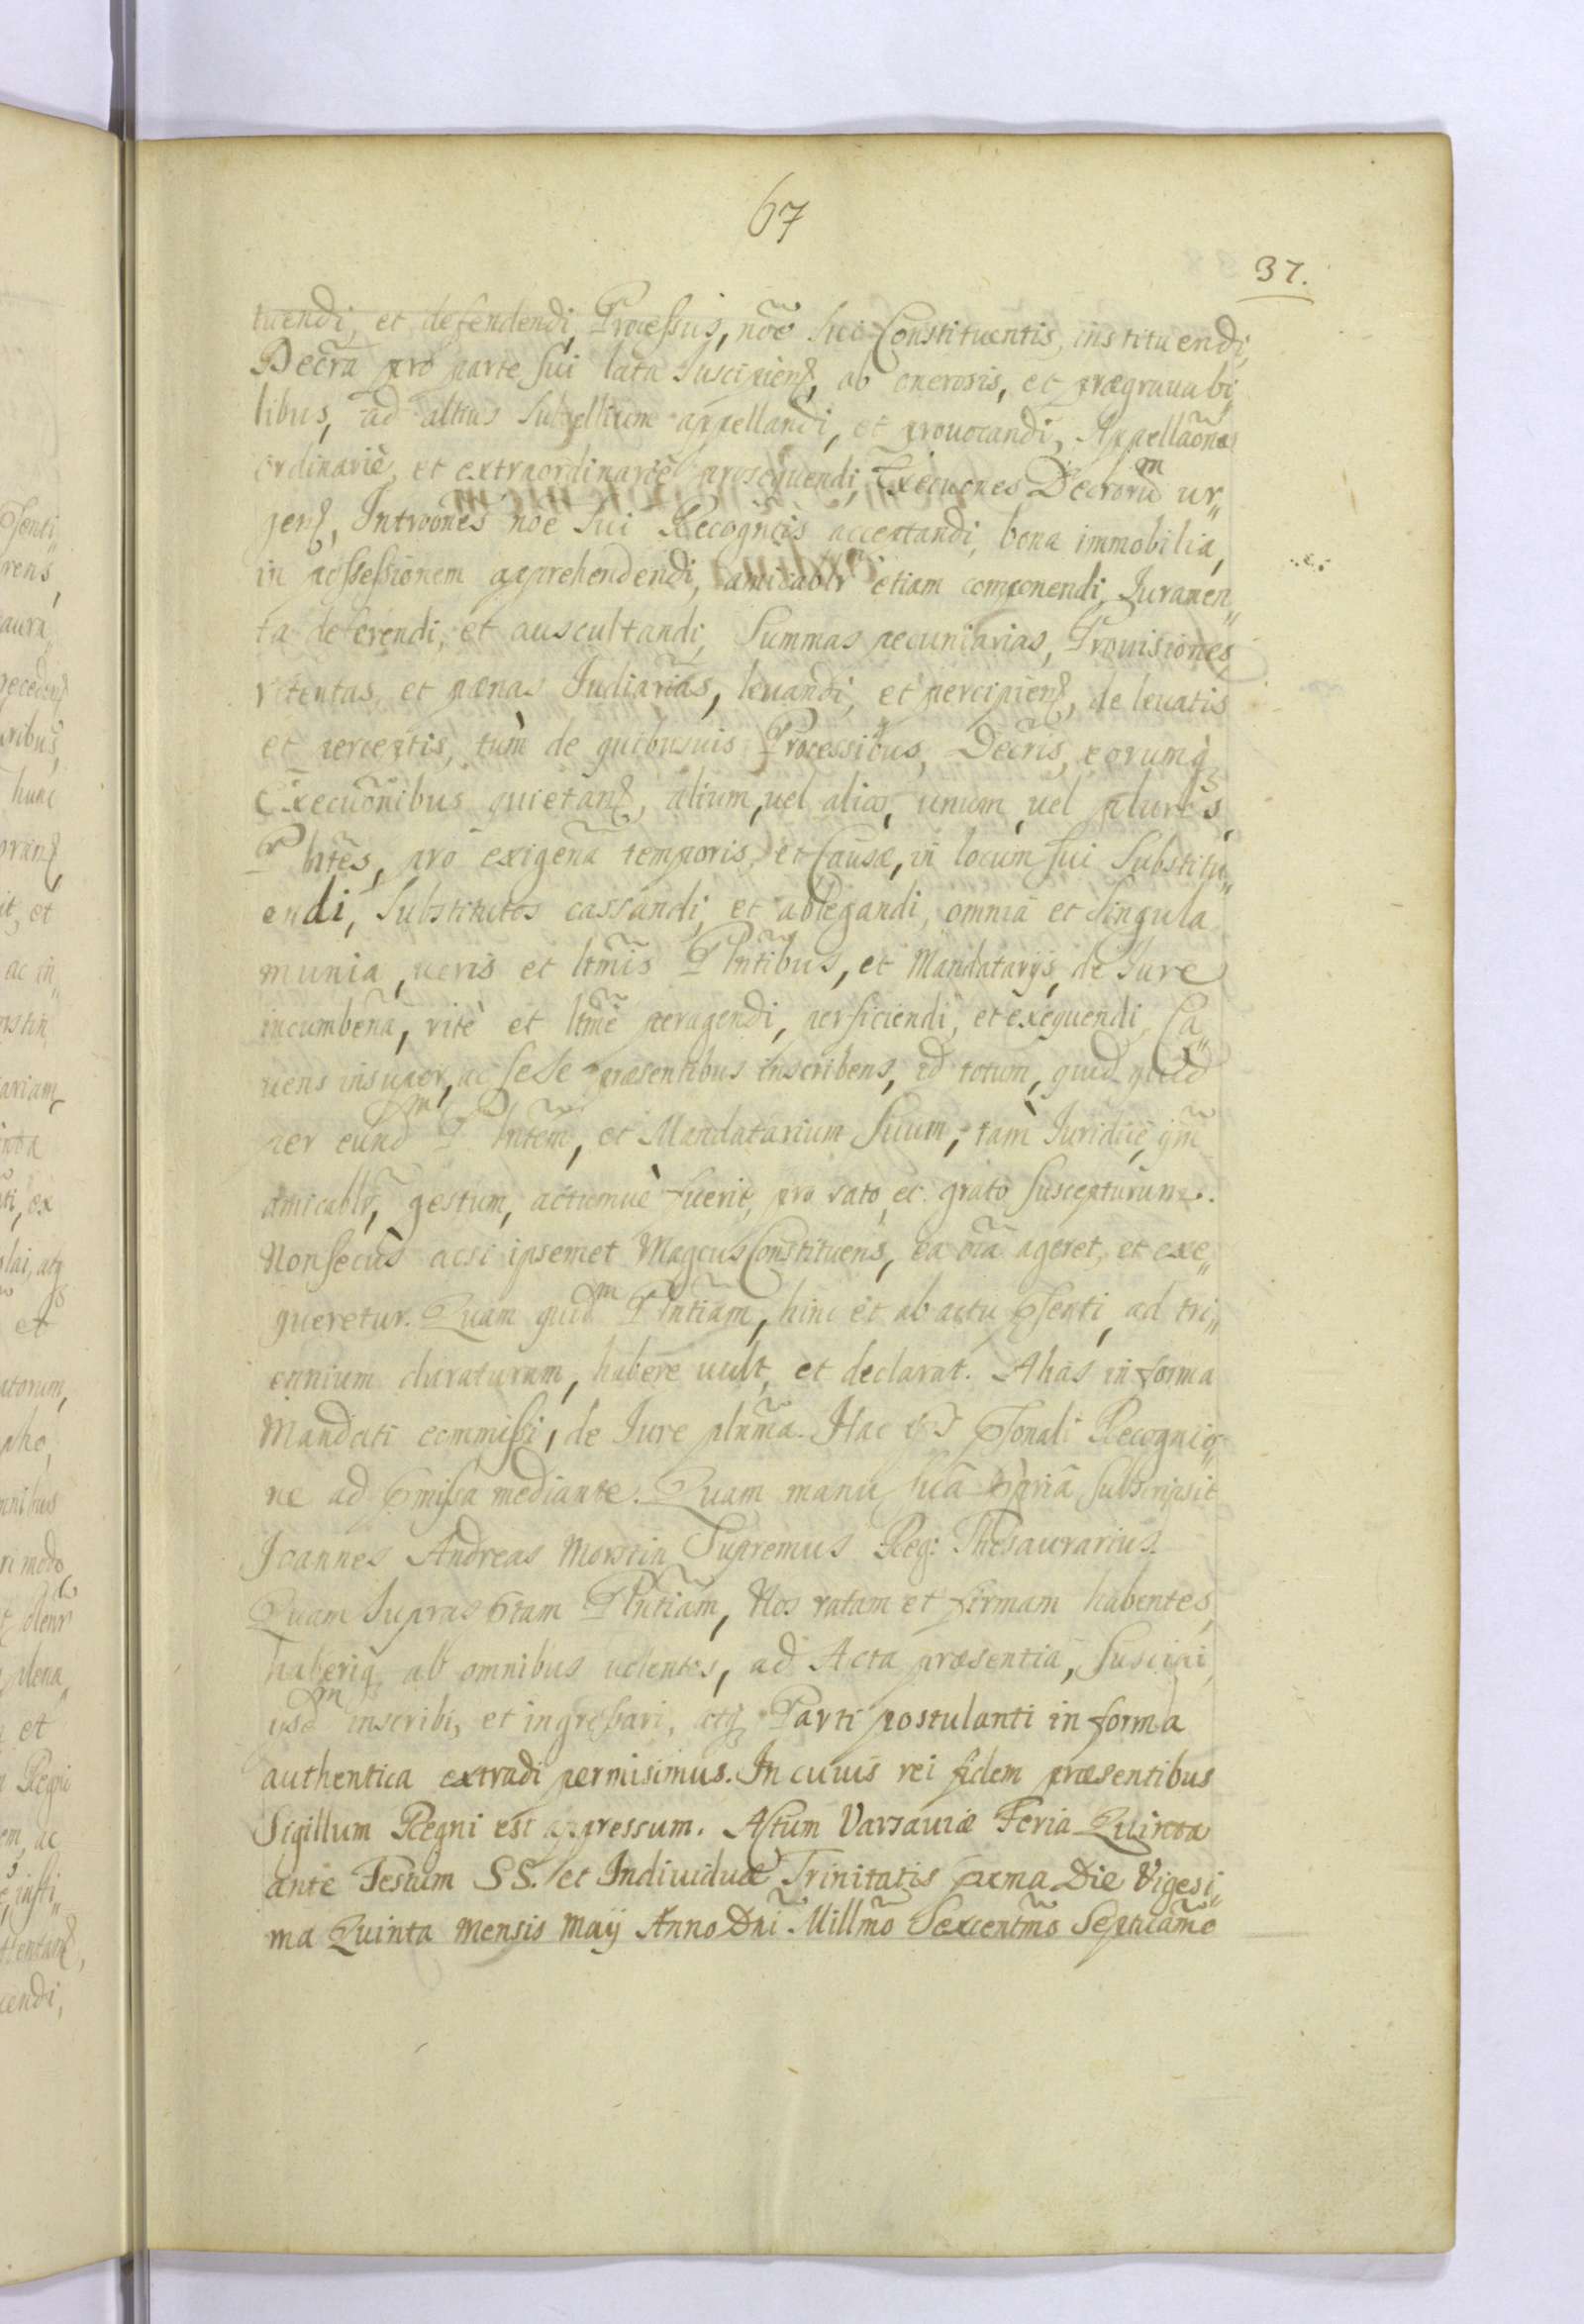 67
37.
tuendi, et defendendi, Processus, nõe sui Constituentis, instituendi,
Decrã pro parte sui lata suscipiend, ab onerosis, et prægrauabi„
libus, ad altius subsellium appellandi, et prouocandi, Appellãones
ordinariè, et extraordinariè prosequendi, Execũones Decrorum ur„
gend, Intrõones nõe sui Recognitis acceptandi, bona immobilia,
in possessionem apprehendendi, amicablr etiam componendi, Iuramen„
ta deferendi, et auscultandi, Summas pecuniarias, Prouisiones,
retentas, et pænas Iudiarias, leuandi, et percipiend, de leuatis
et perceptis, tùm de quibusuis Processibus, Decris, eorumq
Execũonibus quietand, alium, uel alios, unum, uel plures,
Plntes, pro exigena temporis, et Causæ, in locum sui Substitu„
endi, Substitutos cassandi, et ablegandi, omnia et singula
munia, ueris et ltmis Plntibus, et Mandatarijs, de Iure
incumbena, ritè et ltmè peragendi, perficiendi, et exequendi, Ca„
uens insuper, ac sese præsentibus inscribens, id totum, quid quid
per eundm Plntem, et Mandatarium Suum, tàm Iuridicè, qm
amicablr, gestum, actumuè fuerit, pro rato, ec grato suscepturum.
Non secùs acsi ipsemet Magcus Constituens, ea oia ageret, et exe„
queretur. Quam quidm Plntiam, hinc et ab actu Psenti, ad tri„
ennium duraturam, habere uult, et declarat. Alias in forma
Mandati commissi, de Iure plnma. Hac Psonali Recognio„
ne ad Pmissa mediante. Quam manu suâ Ppriâ subscripsit
Joannes Andreas Morstin Supremus Reg: Thesaurarius.
Quam suprasctam Plntiam, Nos ratam et firmam habentes,
haberiq ab omnibus uolentes, ad Acta præsentia, suscipi,
ibidm inscribi, et ingrossari, atq Parti postulanti in forma
authentica extradi permisimus. In cuius rei fidem præsentibus
Sigillum Regni est appressum. Actum Varsauiæ Feria Quinta
ante Festum SS. et Indiuiduæ Trinitatis pxma Die Vigesi„
ma Quinta mensis Maÿ Anno Dni Millmo Sexcentmo Septuãmo